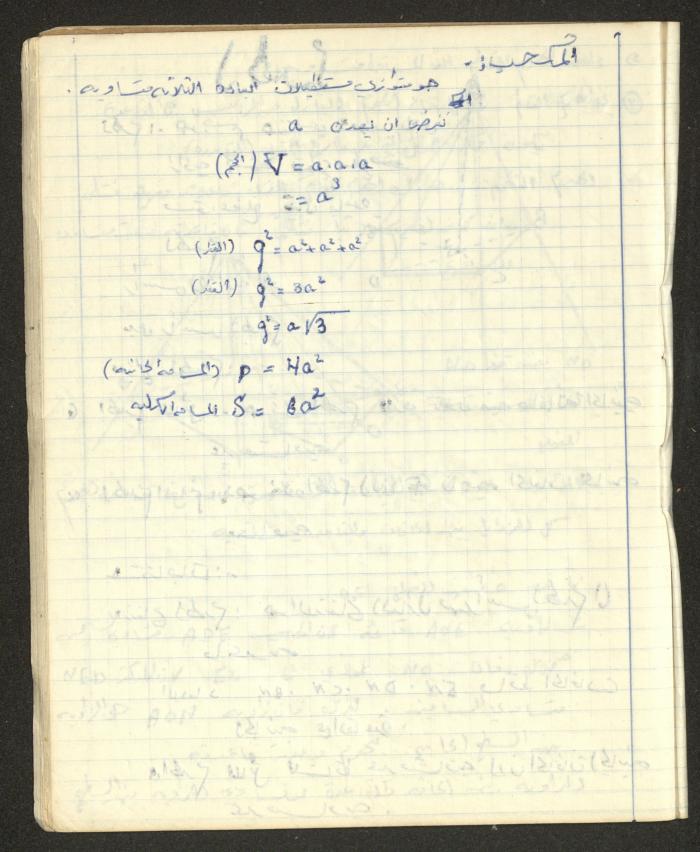 المكعب :-
هو متوازي مستطيلات ابعاده الثلاثة متساوية .
نفرض ان بعده a
(الحجم) V = a.a.a
= a³
(القطر) q² = a²+a²+a²
(القطر) q² = 3a²
q² = a√3
(المساحة الجانبية) P = 4a²
المساحة الكلية S = 6a²